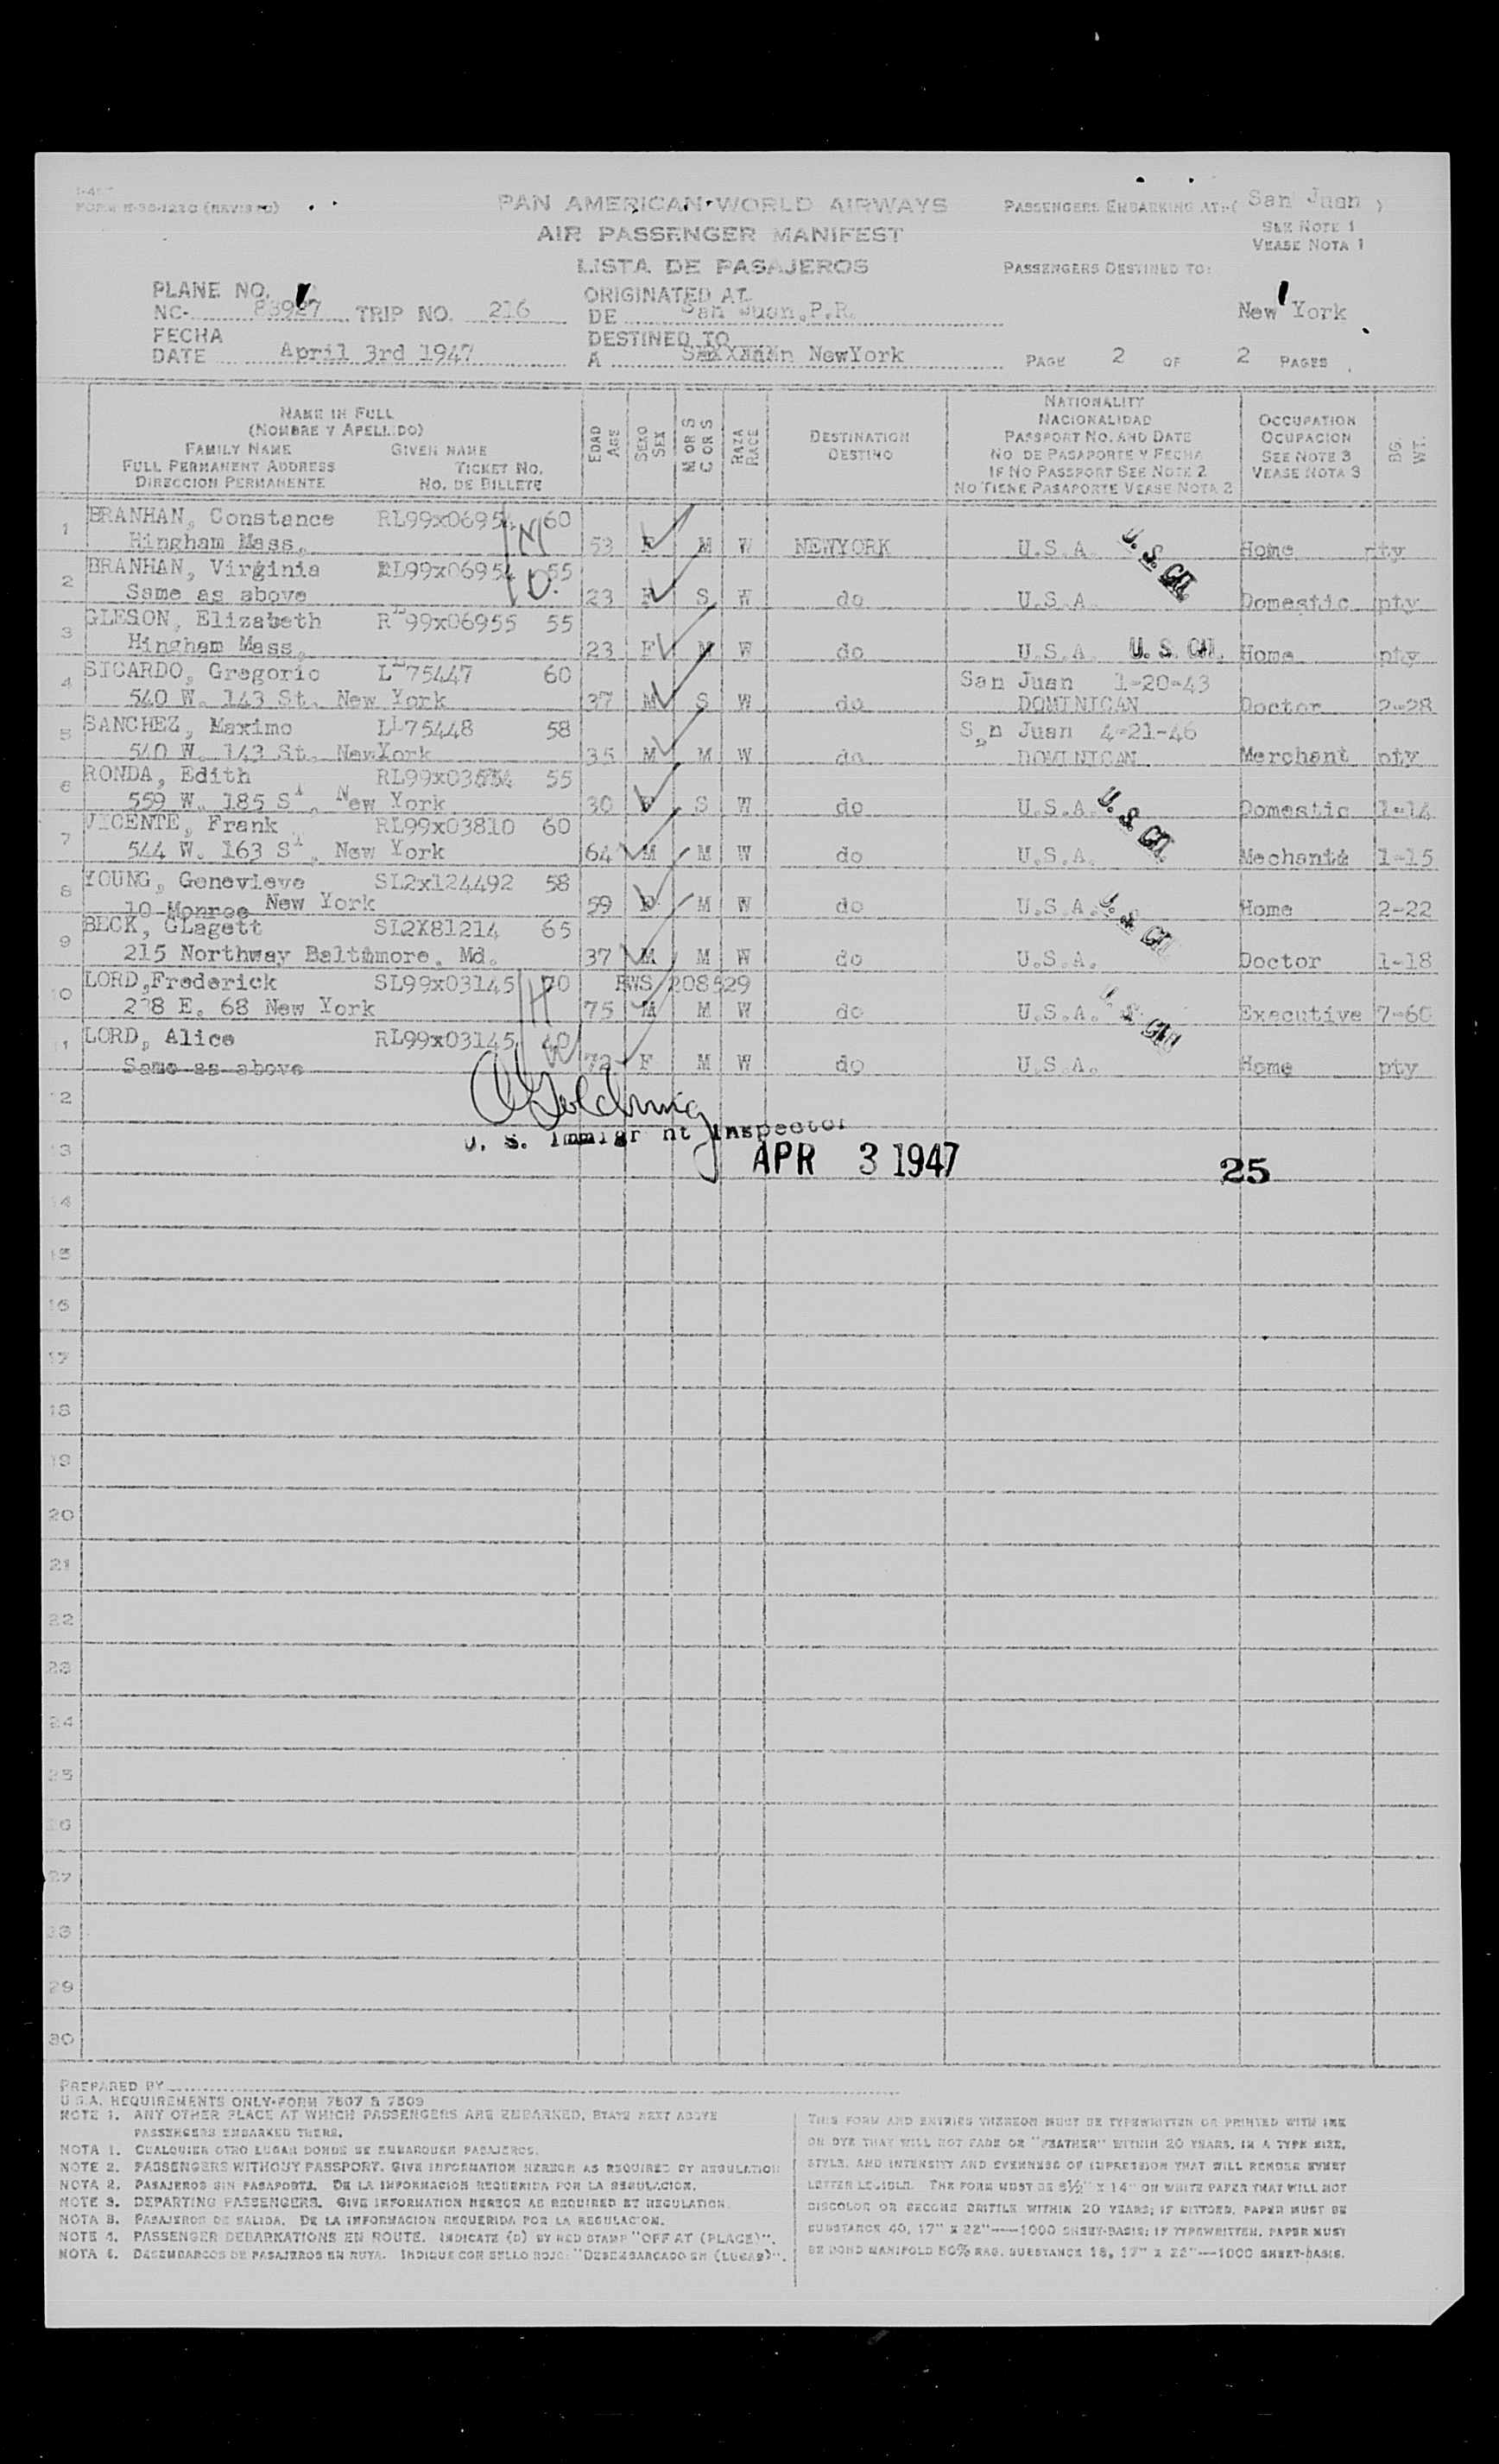 FORM
PAN AMERICAN WORLD AIRWAYS
AIR PASSENGER MANIFEST
LISTA DE PASAJEROS
PASSENGERS EMBARKING AT:( San Juan )
SEE NOTE 1
VEASE NOTA 1
PASSENGERS DESTINED TO:
New York
PLANE NO.
NC- 88927 TRIP NO. 216
ORIGINATED AT
DE San Juan, P.R.
FECHA
DATE April 3rd 1947
DESTINED TO
A NewYork
PAGE 2 OF 2 PAGES
NAME IN FULL
(NOMBRE Y APELLIDO)
FAMILY NAME GIVEN NAME
FULL PERMANENT ADDRESS TICKET NO.
DIRECCION PERMANENTE NO. DE BILLETE
EDAD AGE
SEXO SEX
M OR S C OR S
RAZA RACE
DESTINATION
DESTINO
NATIONALITY
NACIONALIDAD
PASSPORT NO. AND DATE
NO DE PASAPORTE Y FECHA
IF NO PASSPORT SEE NOTE 2
NO TIENE PASAPORTE VEASE NOTA 2
OCCUPATION
OCUPACION
SEE NOTE 3
VEASE NOTA 3
BG. WT.
1 BRANHAN, Constance RL99x06954 60
Hingham Mass. 53 F M W NEWYORK U.S.A. U.S. CIT. Home pty
2 BRANHAN, Virginia RL99x06954 55
Same as above 23 F S W do U.S.A. Domestic pty
3 GLESON, Elizabeth RL99x06955 55
Hingham Mass. 23 F M W do U.S.A. U.S. CIT. Home pty
4 SICARDO, Gregorio LL75447 60 San Juan 1-20-43
540 W. 143 St. New York 37 M S W do DOMINICAN Doctor 2-28
5 SANCHEZ, Maximo LL75448 58 San Juan 4-21-46
540 W. 143 St. NewYork 35 M M W do DOMINICAN Merchant pty
6 RONDA, Edith 55
559 W. 185 St, New York 30 F S W do U.S.A. U.S. CIT. Domestic 1-14
7 VICENTE, Frank RL99x03810 60
544 W. 163 St, New York 64 M M W do U.S.A. 1-15
8 YOUNG, Genevieve SL2x124492 58
10 Monroe New York 59 F M W do U.S.A. U.S. CIT. Home 2-22
9 BECK, GLagett SL2X81214 65
215 Northway Baltimore, Md. 37 M M W do U.S.A. Doctor 1-18
10 LORD,Frederick SL99x03145 70 208529
E. 68 New York 75 M M W do U.S.A. U.S. CIT. Executive 7-60
11 LORD, Alice RL99x03145
Same as above 72 F M W do U.S.A. Home pty
12
U. S. Immigr nt Inspector
13 APR 3 1947 25
14
15
16
17
18
19
20
21
22
23
24
25
26
27
28
29
30
PREPARED BY
U.S.A. REQUIREMENTS ONLY-FORM 7507 & 7509
NOTE 1. ANY OTHER PLACE AT WHICH PASSENGERS ARE EMBARKED, STATE NEXT ABOVE
PASSENGERS EMBARKED THERE.
NOTA 1. CUALQUIER OTRO LUGAR DONDE SE EMBARQUEN PASAJEROS.
NOTE 2. PASSENGERS WITHOUT PASSPORT. GIVE INFORMATION HEREON AS REQUIRED BY REGULATION
NOTA 2. PASAJEROS SIN PASAPORTE. DE LA INFORMACION REQUERIDA POR LA REGULACION.
NOTE 3. DEPARTING PASSENGERS. GIVE INFORMATION HEREON AS REQUIRED BY REGULATION.
NOTA 3. PASAJEROS DE SALIDA. DE LA INFORMACION REQUERIDA POR LA REGULACION.
NOTE 4. PASSENGER DEBARKATIONS EN ROUTE. INDICATE (D) BY RED STAMP "OFF AT (PLACE)".
NOTA 4. DESEMBARCOS DE PASAJEROS EN RUTA. INDIQUE CON SELLO ROJO: "DESEMBARCADO EN (LUGAR)".
THIS FORM AND ENTRIES THEREON MUST BE TYPEWRITTEN OR PRINTED WITH INK
OR DYE THAT WILL NOT FADE OR "FEATHER" WITHIN 20 YEARS, IN A TYPE SIZE,
STYLE, AND INTENSITY AND EVENNESS OF IMPRESSION THAT WILL RENDER EVERY
LETTER LEGIBLE. THE FORM MUST BE 8½" X 14" ON WHITE PAPER THAT WILL NOT
DISCOLOR OR BECOME BRITTLE WITHIN 20 YEARS; IF DITTOED, PAPER MUST BE
SUBSTANCE 40, 17" X 22"—1000 SHEET-BASIS; IF TYPEWRITTEN, PAPER MUST
BE BOND MANIFOLD 50% RAG, SUBSTANCE 16, 17" X 22"—1000 SHEET-BASIS.